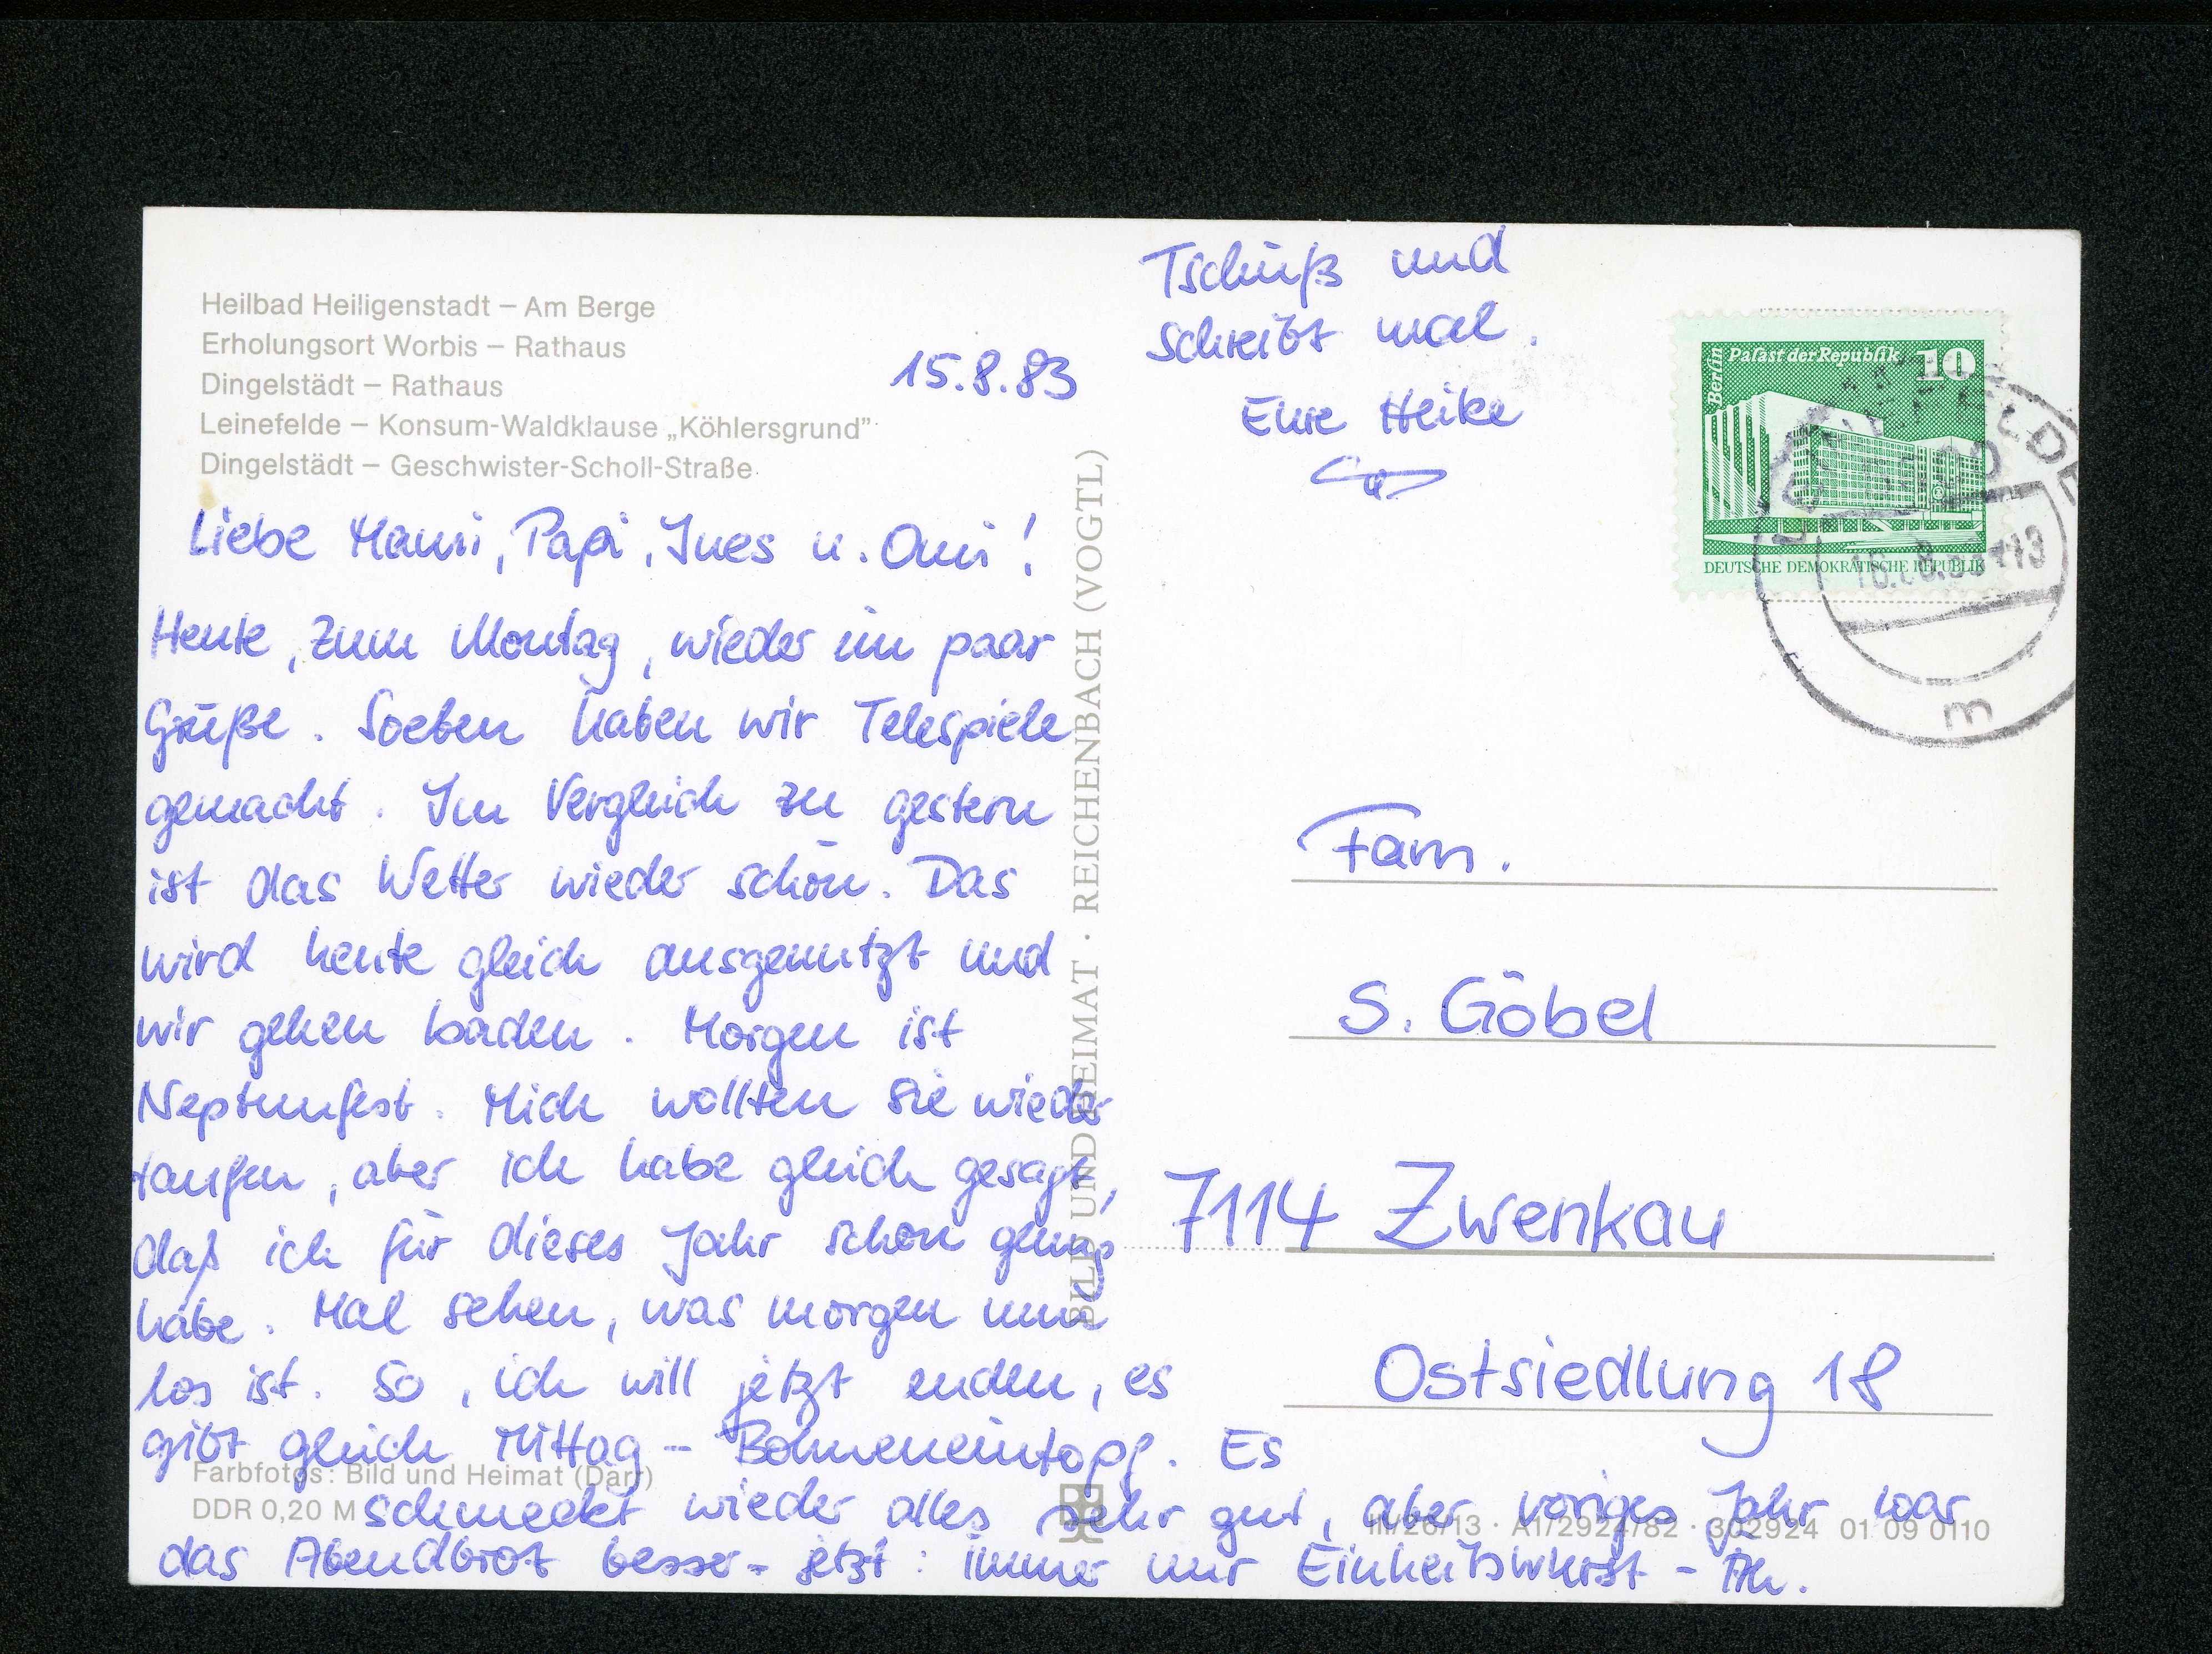 Heilbad Heiligenstadt – Am Berge
Erholungsort Worbis – Rathaus
Dingelstädt – Rathaus
Leinefelde – Konsum-Waldklause „Köhlersgrund"
Dingelstädt – Geschwister-Scholl-Straße
15.8.83
Liebe Mami, Papi, Ines u. Omi!
Heute, zum Montag, wieder ein paar
Grüße. Soeben haben wir Telespiele
gemacht. Im Vergleich zu gestern
ist das Wetter wieder schön. Das
wird heute gleich ausgenutzt und
wir gehen baden. Morgen ist
Neptunfest. Mich wollten sie wieder
taufen, aber ich habe gleich gesagt,
daß ich für dieses Jahr schon genug
habe. Mal sehen, was morgen nun
los ist. So, ich will jetzt enden, es
gibt gleich Mittag – Bohneneintopf. Es
schmeckt wieder alles sehr gut, aber voriges Jahr war
das Abendbrot besser – jetzt: immer nur Einheitswurst –
Farbfotos: Bild und Heimat (Darr)
DDR 0,20 M
BILD UND HEIMAT · REICHENBACH (VOGTL)
Tschüß und
schreibt mal.
Eure Heike
Berlin
Palast der Republik
10
DEUTSCHE DEMOKRATISCHE REPUBLIK
16.8.83-13
m
Fam.
S. Göbel
7114 Zwenkau
Ostsiedlung 18
III/26/13 · A1/2924/82 · 302924 01 09 0110